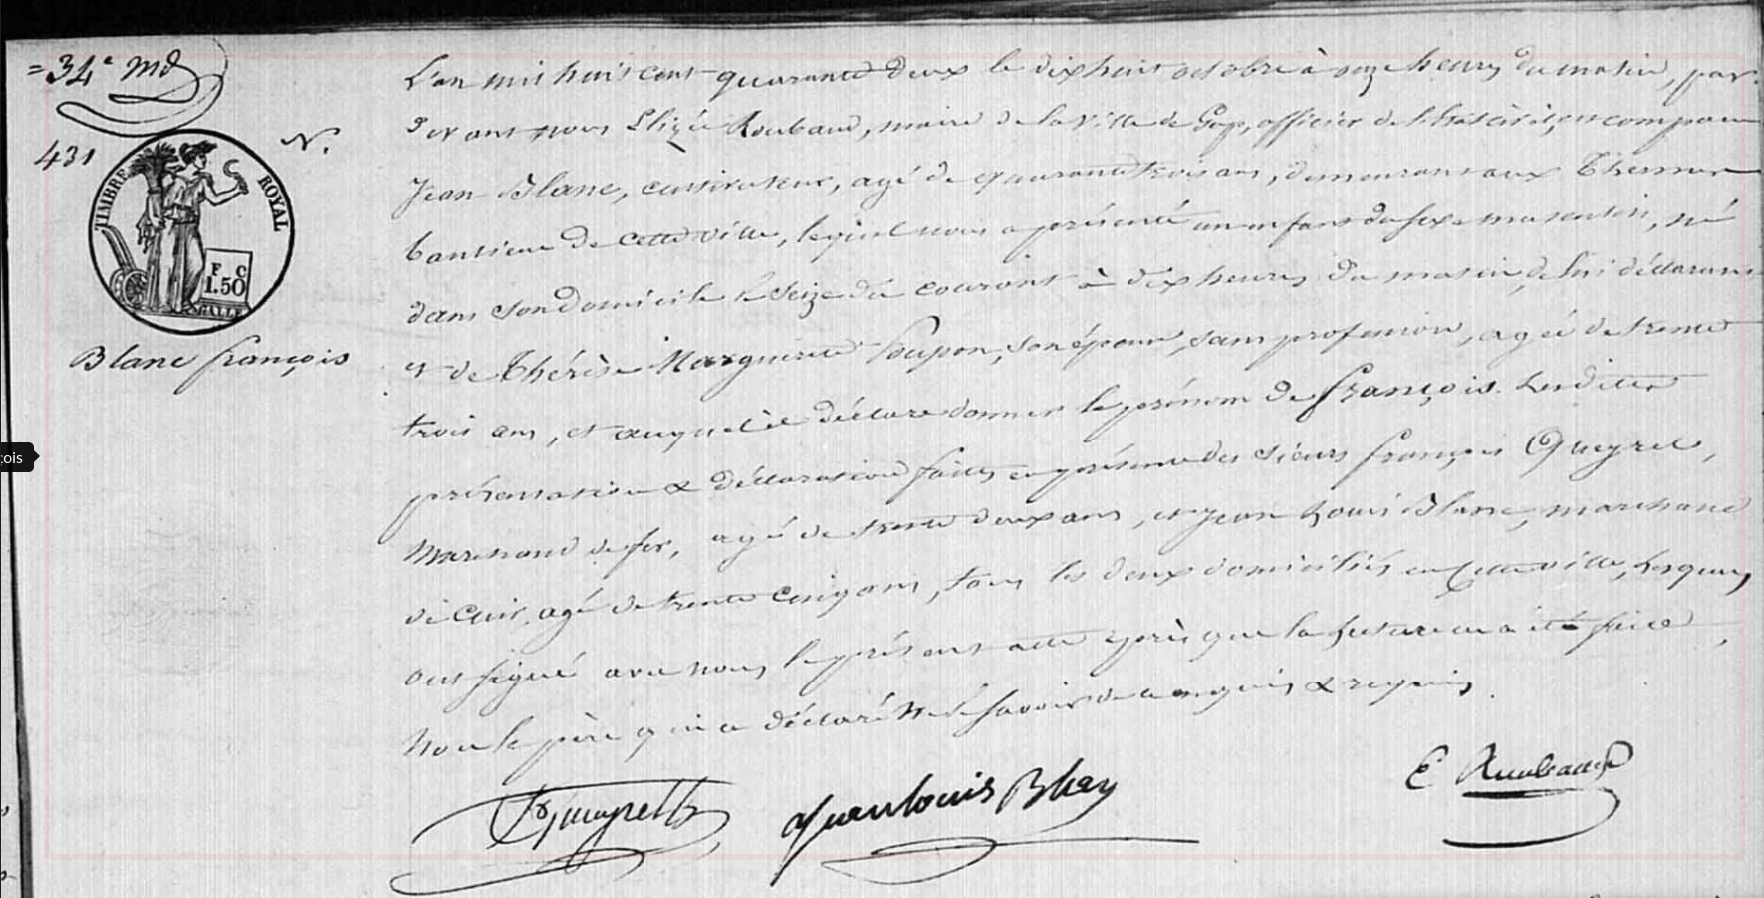 =34e md
431
N.
TIMBRE ROYAL
F C
1.50
GALLE
Blanc françois
L'an mil huit cent quarante deux le dix huit octobre à onze heures du matin, par
devant nous Elizée Roubaud, maire de la ville de Gap, officier de l'état civil, est comparu
Jean Blanc, cultivateur, agé de quarante trois ans, demeurant aux
banlieue de cette ville, lequel nous a présenté un enfant du sexe masculin, né
dans son domicile le seize du courant à dix heures du matin, de lui déclarant
et de Thérèse Marguerite Poupon, son épouse, sans profession, agée de trente
trois ans, et auquel il a déclaré donner le prénom de françois. Lesdites
présentation & déclaration faites en présence des sieurs françois Queyrel,
Marchand de fer, agé de trente deux ans, et Jean Louis Blanc, marchand
de Cuir, agé de trente cinq ans, tous les deux domiciliés en Cette ville, lesquels
ont signé avec nous le présent acte après que la lecture en a été faite,
Non le père qui a déclaré ne le savoir de ce enquis & requis.
Jean louis Blanc
E Roubaud
ois